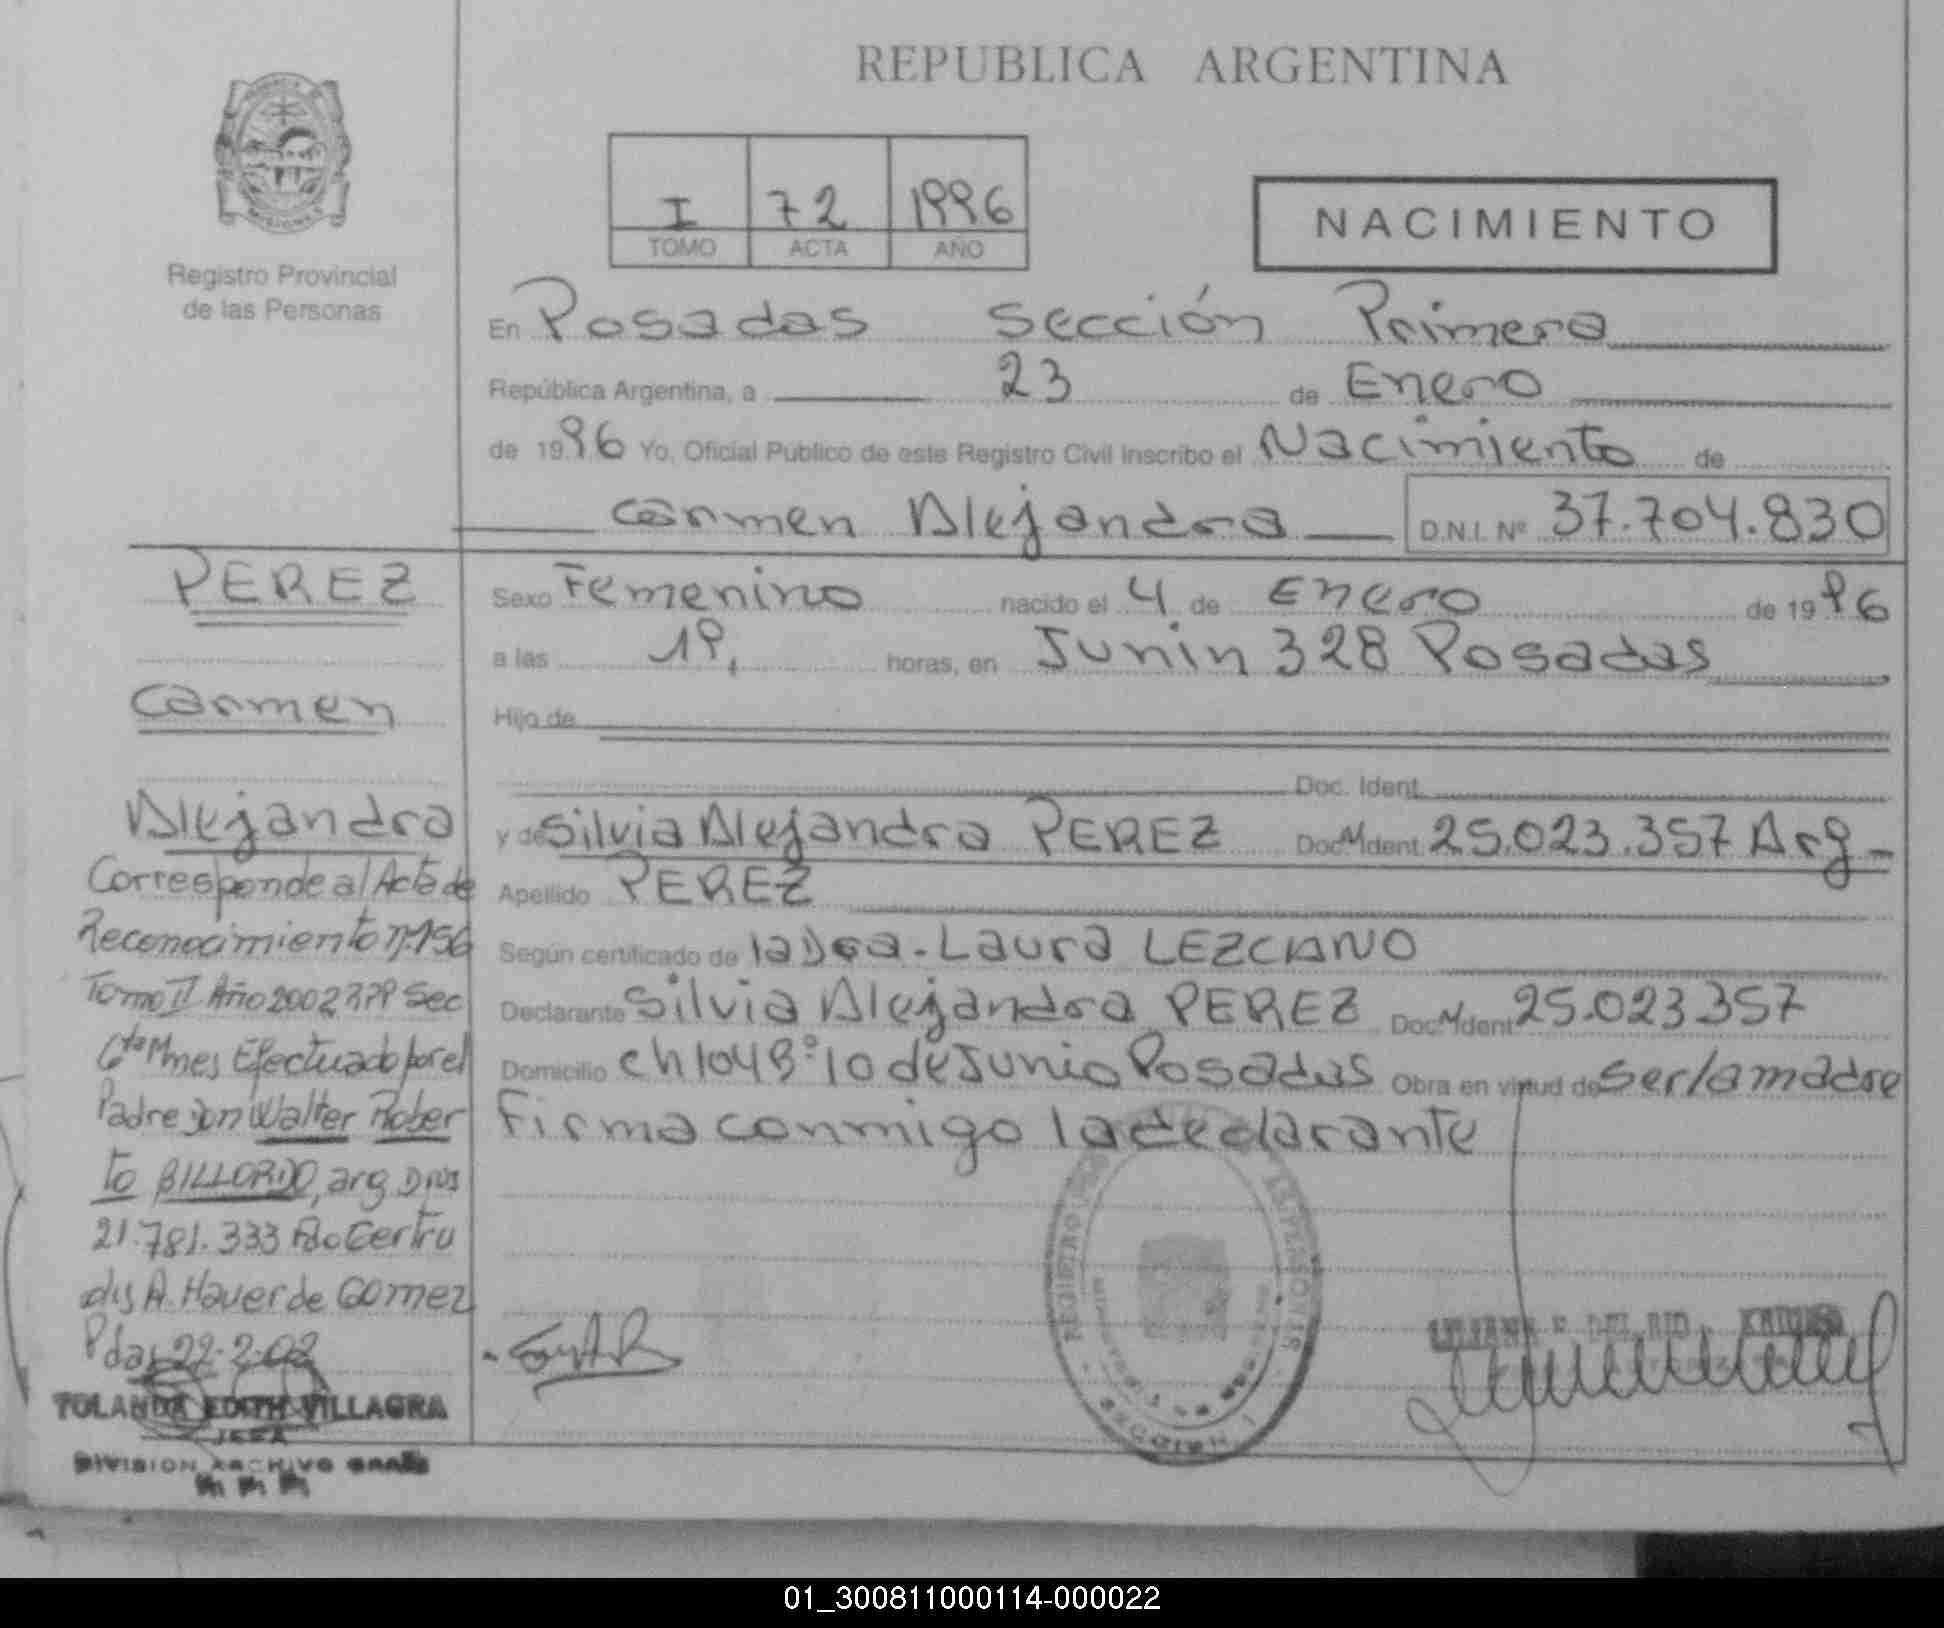 REPUBLICA ARGENTINA
Registro Provincial
de las Personas
I 72 1996
TOMO ACTA AÑO
NACIMIENTO
En Posadas Sección Primera
República Argentina, a 23 de Enero
de 1996 Yo, Oficial Público de este Registro Civil Inscribo el Nacimiento de
Carmen Alejandra D.N.I. Nº 37.704.830
Sexo Femenino nacido el 4 de Enero de 1996
a las 19, horas, en Junin 328 Posadas
Hijo de
Doc. Ident.
y de Silvia Alejandra PEREZ Doc. Ident. 25.023.357 Arg-
Apellido PEREZ
Según certificado de la Dra. Laura LEZCANO
Declarante Silvia Alejandra PEREZ Doc. Ident. 25.023357
Domicilio ch 104 Bº 10 de Junio Posadas Obra en virtud de Ser la madre
Firma conmigo la declarante
PEREZ
Carmen
Alejandra
Corresponde al Acta de
Reconocimiento nº 156
Tomo II Año 2002 Sec
6ta Mnes Efectuado por el
Padre Don Walter Rober
to BILLORDO, arg
21.781.333 Fdo Gertru
dis A. Hauer de GOMEZ
Pdas 22-2-02
YOLANDA EDITH VILLAGRA
JEFA
DIVISION ARCHIVO GRAL
LILIANA DEL
01_300811000114-000022